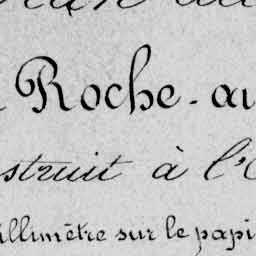 Roche-au
struit à l'
illimètre sur le papi